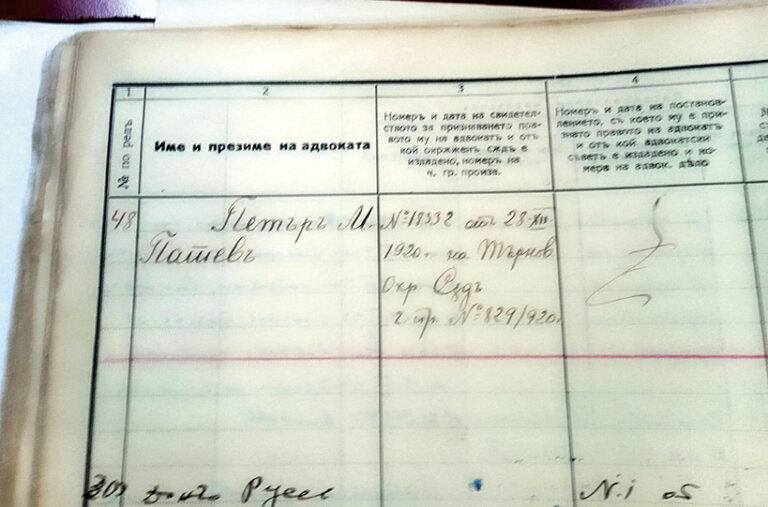 1
2
3
4
№ по редъ
Име и презиме на адвоката
Номеръ и дата на свидетел-
ството за признаването пра-
вото му на адвокатъ и отъ
кой окрѫженъ сѫдъ е
издадено, номеръ на
ч. гр. произв.
Номеръ и дата на постанов-
лението, съ което му е при-
знато правото на адвокатъ
и отъ кой адвокатски
съветъ е издадено и но-
мера на адвок. дѣло
48
Петъръ М.
Пашевъ
№ 18332 отъ 28.XII
1920 г. на Търнов
Окр. Сѫдъ
ч. гр. № 829/920.
N.1 05